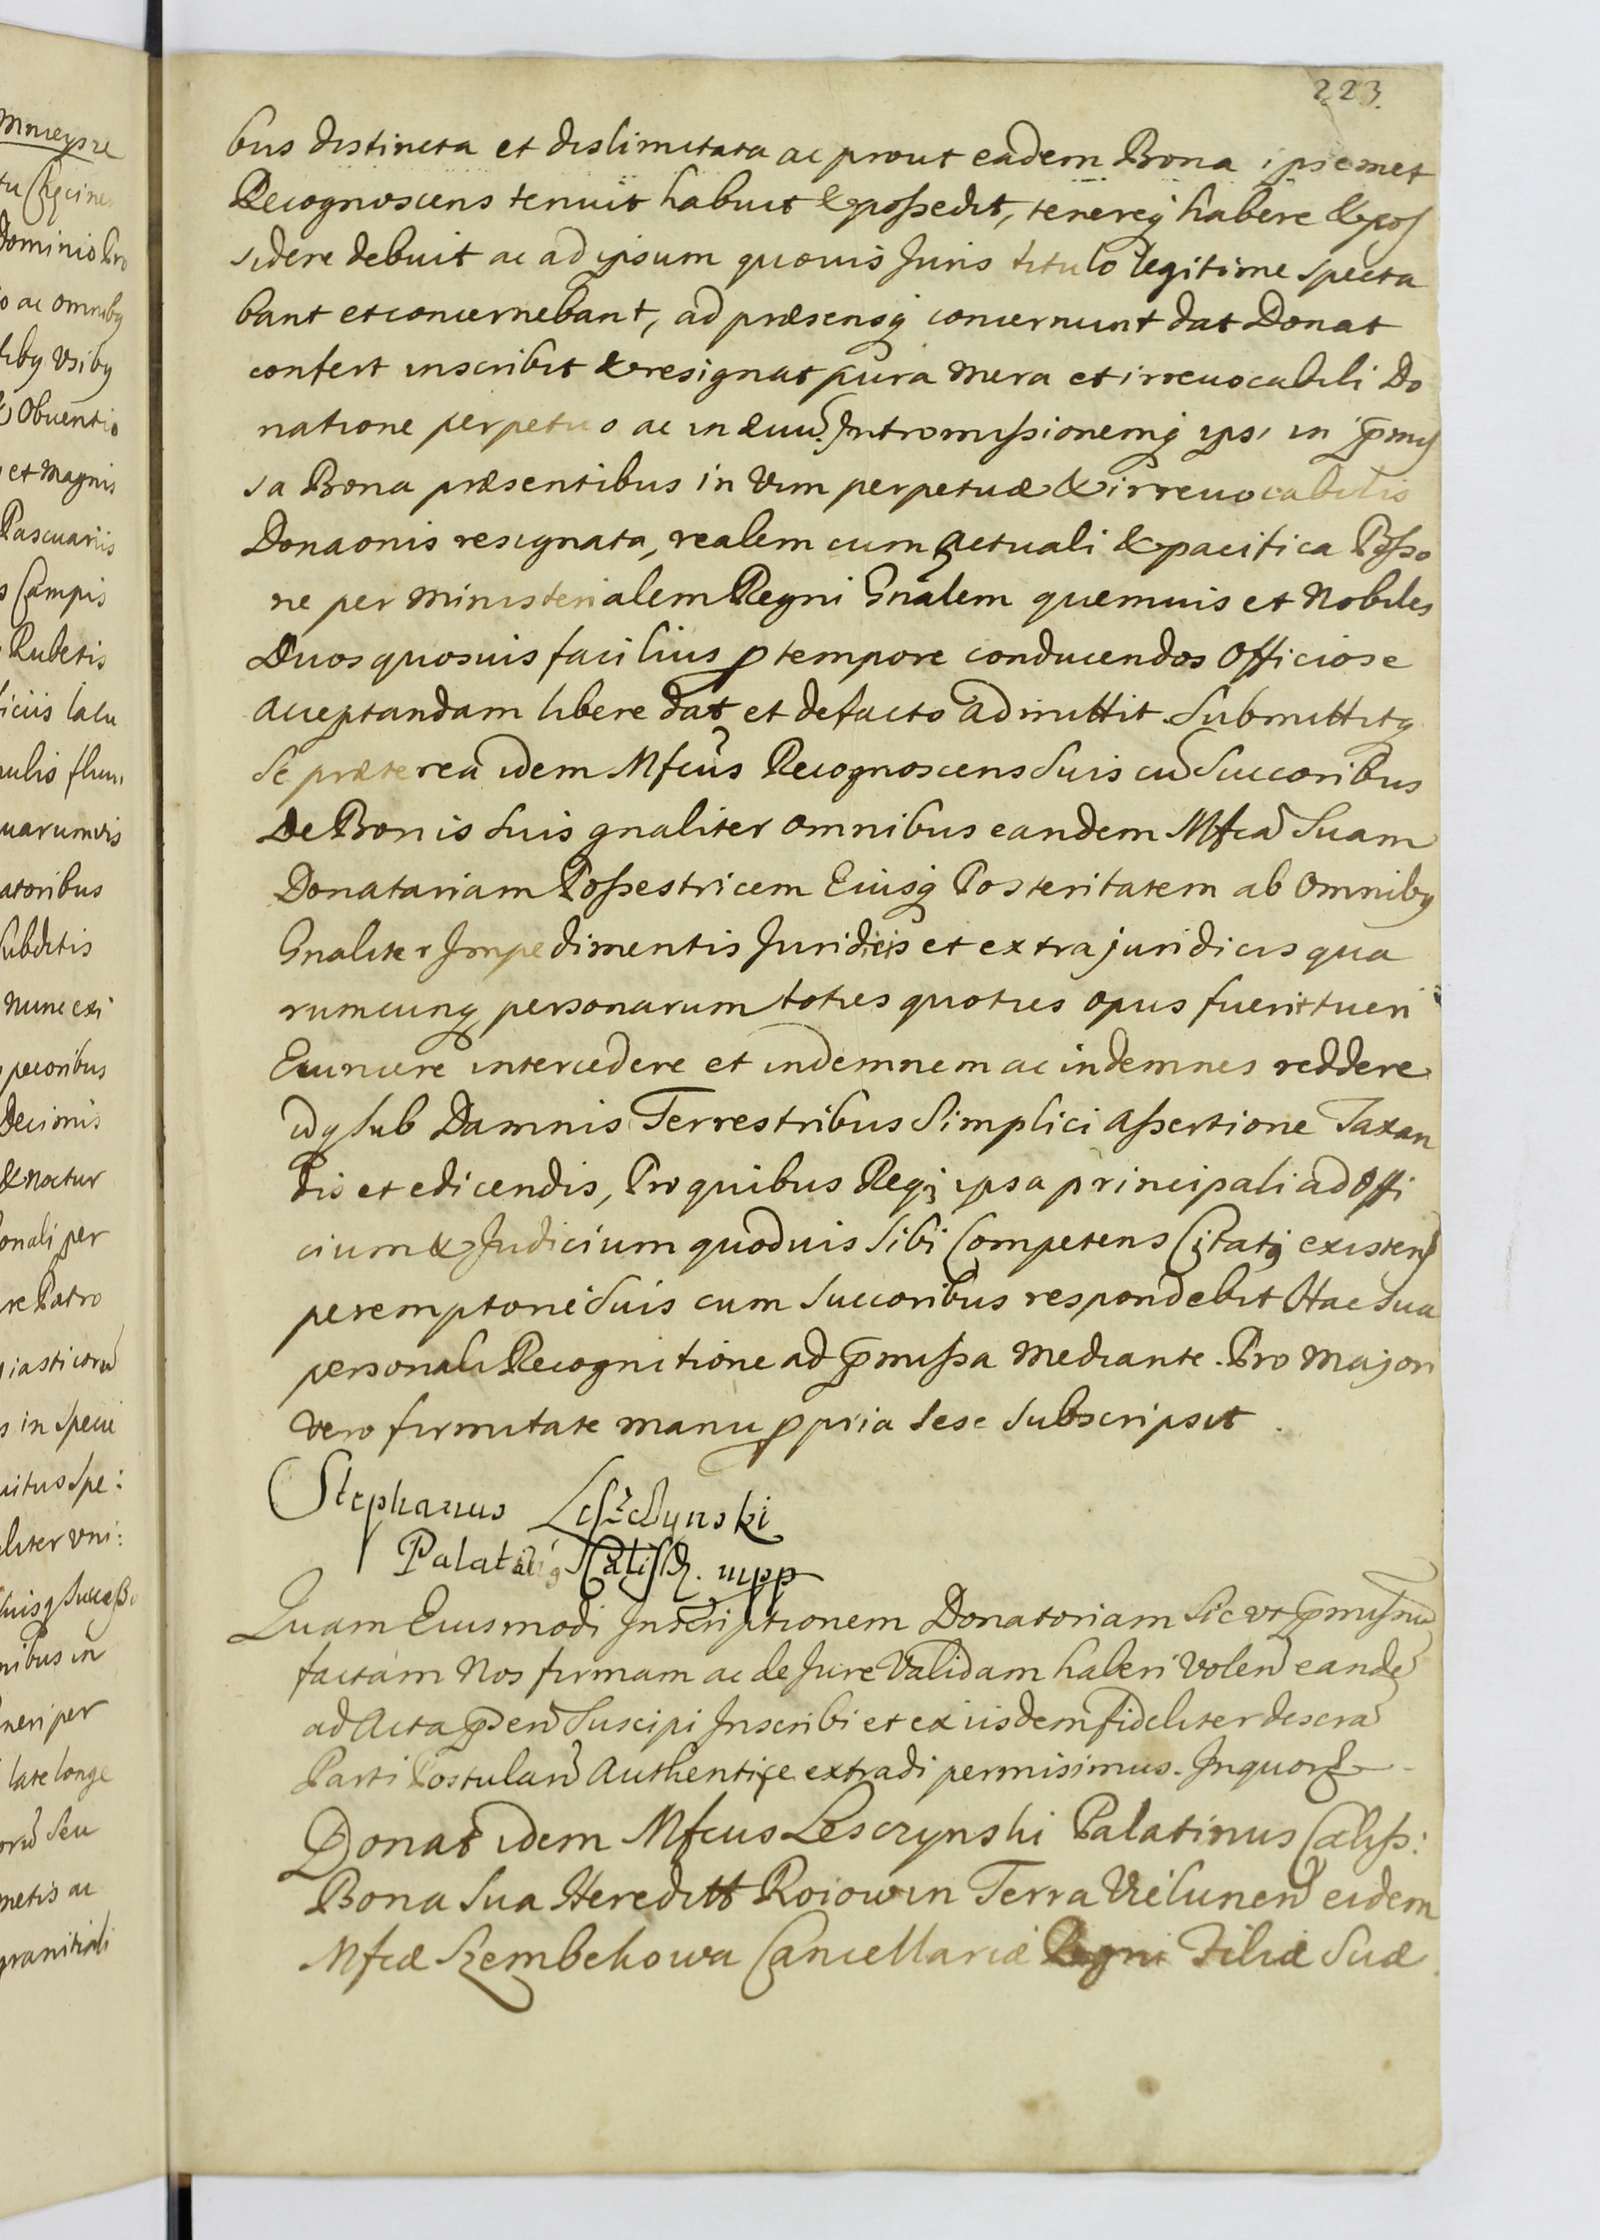 223.
bus distincta et dislimitata ac prout eadem Bona ipsemet
Recognoscens tenuit habuit & possedit, tenereq habere & pos
sidere debuit ac ad ipsum quovis Juris titulo legitime specta
bant et concernebant, ad præsensq concernunt dat Donat
confert inscribit & resignat pura mera et irrevocabili Do
natione perpetuo ac in æuu. Intromissionemq ipsi in p̄mis
sa Bona præsentibus in Vim perpetuæ & irrevocabilis
Donaonis resignata, realem cum actuali & pacifica Posso
ne per Ministerialem Regni Gnālem quemuis et Nobiles
Duos quosuis facilius p tempore conducendos Officiose
acceptandam libere dat et defacto admittit. Submittitq
Se præterea idem Mfcus Recognoscens Suis cū Succoribus
De Bonis Suis gnaliter omnibus eandem Mfcā Suam
Donatariam Possestricem Eiusq Posteritatem ab Omnibq
Gnaliter Impedimentis Juridicis et extrajuridicis qua
rumcunq personarum toties quoties opus fuerit tueri
Euincere intercedere et indemnem ac indemnes reddere
idq sub Damnis Terrestribus Simplici assertione Taxan
dis et edicendis, Pro quibus Reqz ipsa principali ad Offi
cium & Judicium quoduis Sibi Competens Citatq existen
peremptorie Suis cum Succoribus respondebit Hac Sua
personali Recognitione ad p̄missa Mediante. Pro Majori
Vero firmitate manu ppria Sese Subscripsit.
Stephanus Leszczynski
Palatinq Calisz. mpp
Quam Eiusmodi Inscriptionem Donatoriam Sic vt p̄missum
factam Nos firmam ac de Jure Validam haberi Volen̄ eandē
ad Acta p̄sen̄ Suscipi Inscribi et ex iisdem fideliter descrā
Parti Postulan̄ Authentice extradi permisimus. In quor
Donat idem Mfcus Lesczynski Palatinus Caliss:
Bona Sua Hereditt Roiow in Terra Vielunen̄ eidem
Mfcæ Szembekowa Cancellariæ Regni Filiæ Suæ